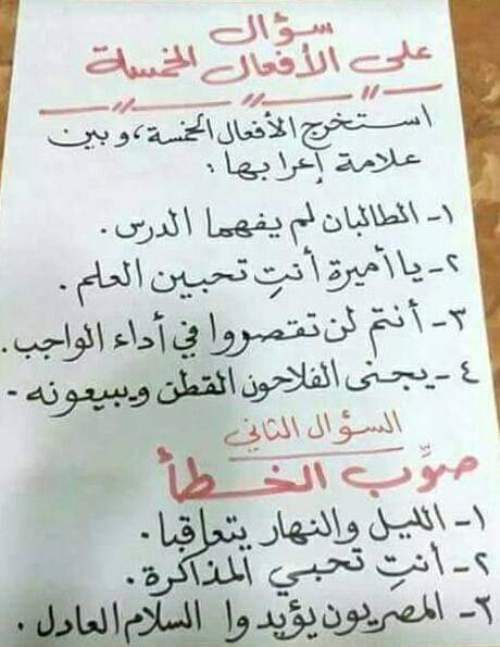 سؤال
على الأفعال الخمسة
استخرج الأفعال الخمسة، وبين
علامة إعرابها :
١- الطالبان لم يفهما الدرس .
٢- يا أميرة أنتِ تحبين العلم .
٣- أنتم لن تقصروا في أداء الواجب .
٤- يجنى الفلاحون القطن ويبيعونه -
السؤال الثاني
صوِّب الخطأ
١- الليل والنهار يتعاقبا .
٢- أنتِ تحبي المذاكرة .
٣- المصريون يؤيدوا السلام العادل .